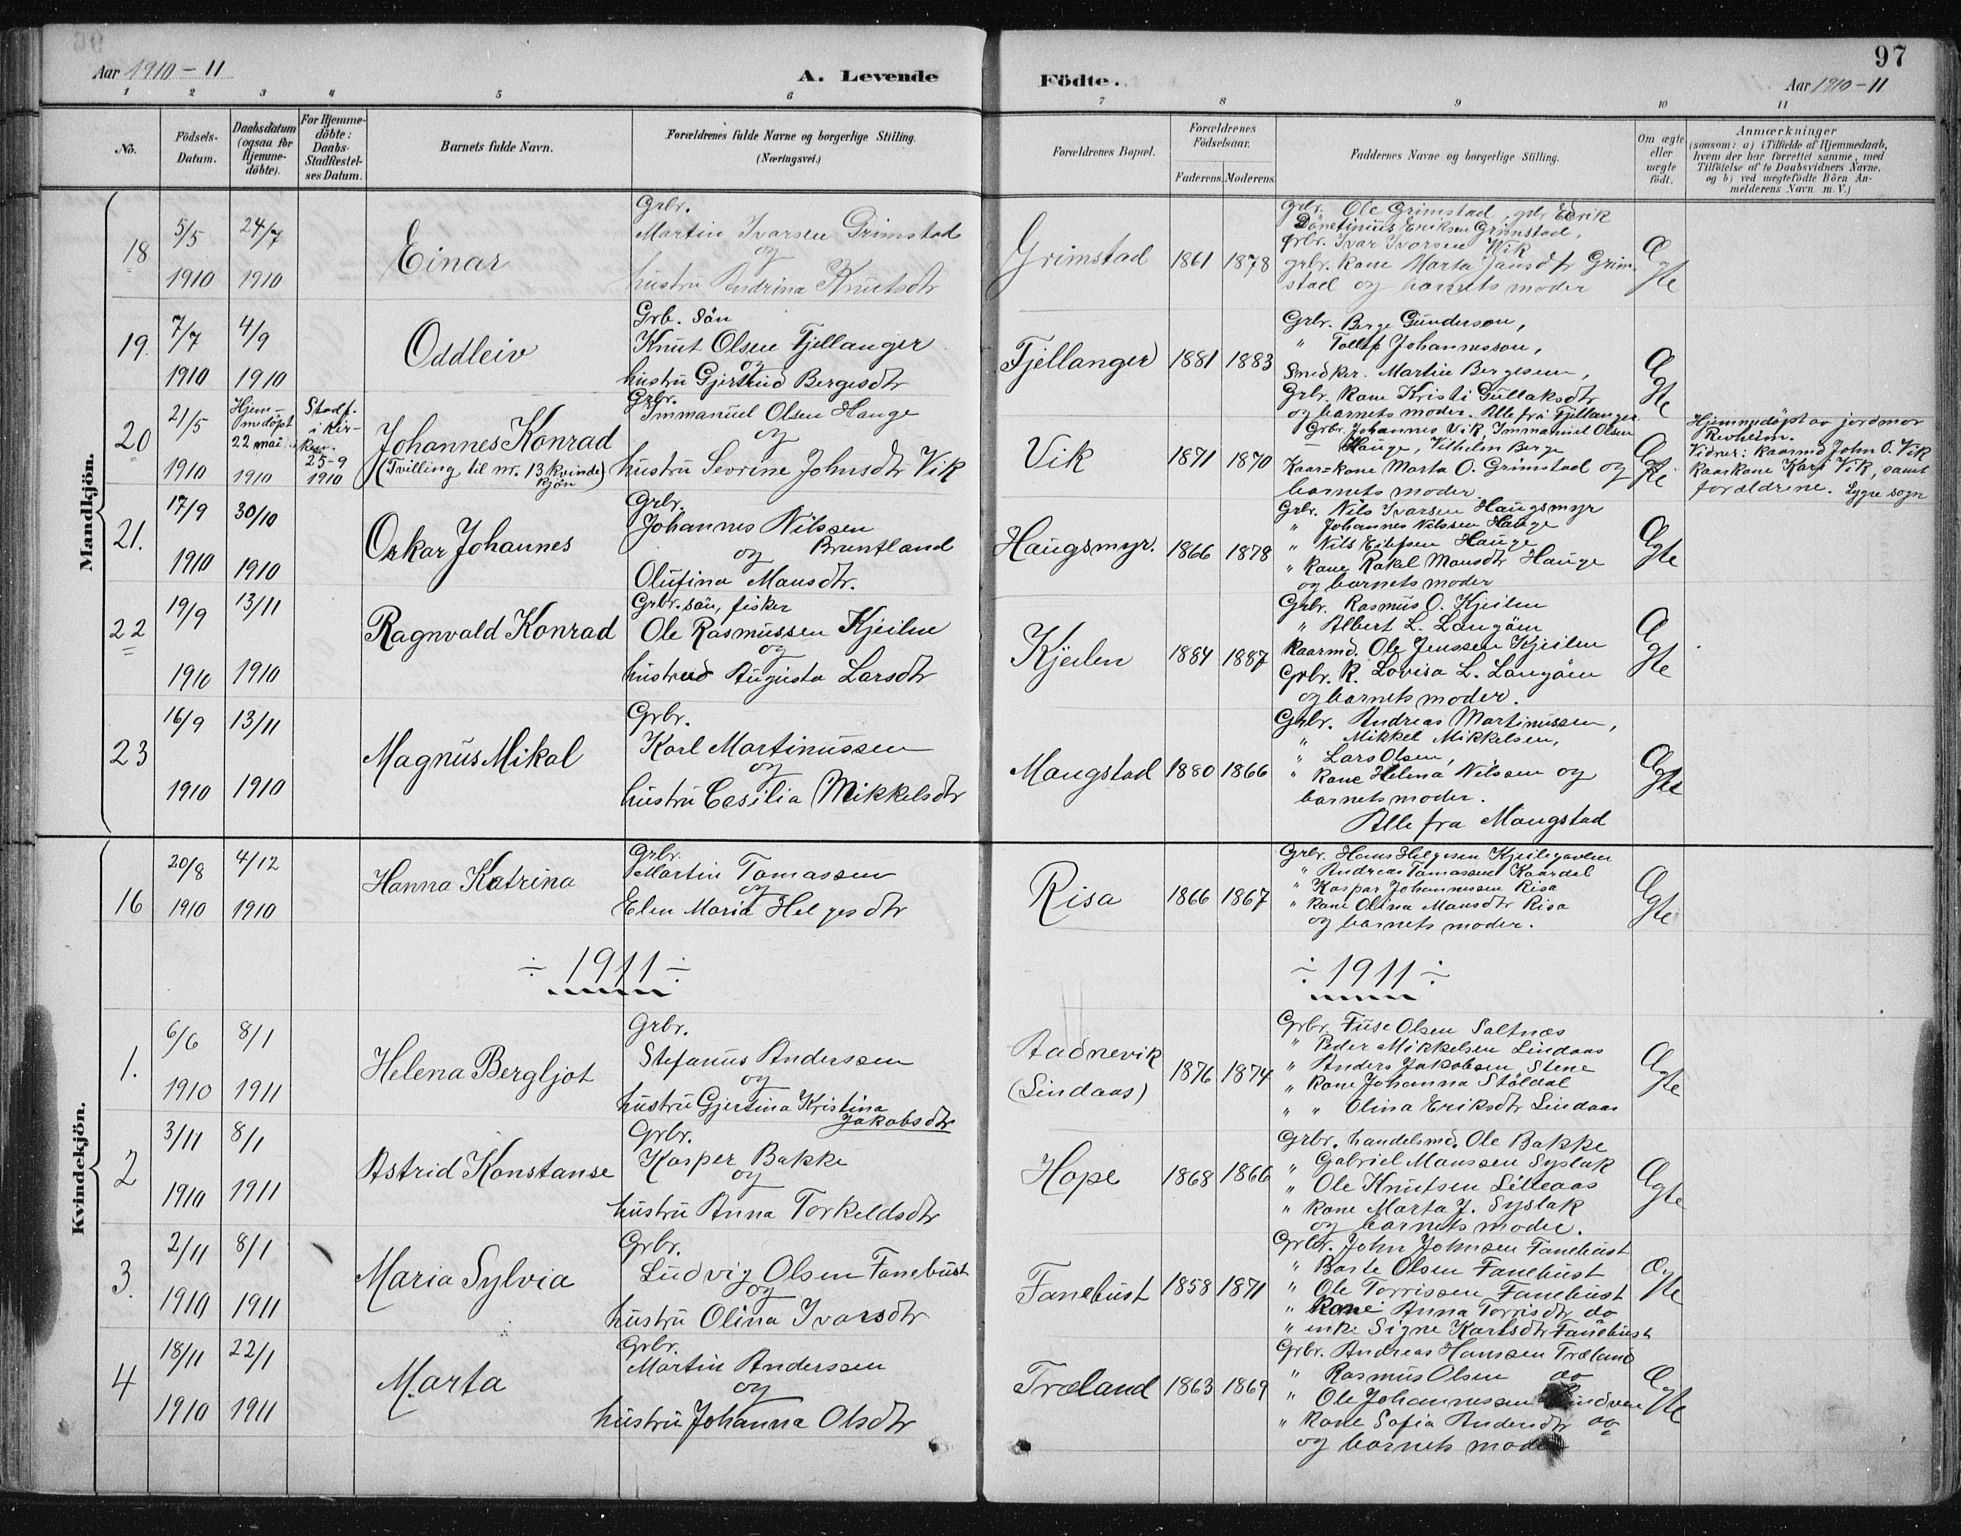 Aar 1910-11
A. Levende
Födte.
97
Aar 1910-11
1 2 3 4 5 6 7 8 9 10 11
No.
Födsels-
Datum.
Daabsdatum
(ogsaa for
Hjemme-
döbte).
For Hjemme-
döbte:
Daabs-
Stadfæstel-
ses Datum.
Barnets fulde Navn.
Forældrenes fulde Navne og borgerlige Stilling.
(Næringsvei.)
Forældrenes Bopæl.
Forældrenes
Födselsaar.
Faderens. Moderens.
Faddernes Navne og borgerlige Stilling.
Om ægte
eller
uægte
födt.
Anmærkninger
(saasom: a) i Tilfælde af Hjemmedaab,
hvem der har forrettet samme, med
Tilföielse af to Daabsvidners Navne,
og b) ved uægtefödte Börn An-
melderens Navn m. V.)
Mandkjön.
18
5/5
1910
24/7
1910
Einar
Grbr.
Martin Ivarsen Grimstad
og
hustru Andrina Knutsdtr
Grimstad
1861 1878
Grbr. Ole Grimstad, grbr
Eriksen Grimstad,
grbr. Ivar Ivarsen Vik
grbr. kone Marta Jansdtr Grim-
stad og barnets moder
Ægte
19.
7/7
1910
4/9
1910
Oddleiv
Grb. sön
Knut Olsen Fjellanger
og
hustru Gjertrud Bergesdtr
Fjellanger
1881 1883
Grbr. Berge Gunderson,
" Johannesson,
Smed Martin Bergesen,
Grbr. kone Kristi Gullaksdtr
og barnets moder. Alle fra Fjellanger
Ægte
20
21/5
1910
Hjem-
medöpt
22 mai
1910
Stadf.
i kir-
ken.
25-9
1910
Johannes Konrad
(Tvilling til nr. 13 kvinde
kjön)
Grbr.
Immanuel Olsen Hauge
og
hustru Sevrine Johnsdtr Vik
Vik
1871 1870
Grbr. Johannes Vik, Immanuel Olsen
Hauge, Vilhelm Berge
Kaar-kone Marta O. Grimstad og
barnets moder.
Ægte
Hjemmedöpt av jordmor
Revheim.
Vidner: kaarmd John O. Vik
Kaarkone Kari Vik, samt
forældrene. Lygre sogn
21.
17/9
1910
30/10
1910
Oskar Johannes
Grbr.
Johannes Nilssen
og Bruntland
Olufina Mansdtr.
Haugsmyr.
1866 1878
Grbr. Nils Ivarsen Haugsmyr
" Johannes Nilssen Hauge
" Nils Eilefsen Hauge
" kone Rakel Mansdtr Hauge
og barnets moder
Ægte
22
19/9
1910
13/11
1910
Ragnvald Konrad
Grbr. sön, fisker
Ole Rasmussen Kjeilen
og
hustrud Augusta Larsdtr
Kjeilen
1884 1887
Grbr. Rasmus O. Kjeilen
" Albert L. Langöen
kaarmd. Ole Jenssen Kjeilen
Grbr. k. Lovisa L. Langöen
og barnets moder.
Ægte
23
16/9
1910
13/11
1910
Magnus Mikal
Grbr.
Karl Martinussen
og
hustru Cesilia Mikkelsdtr
Mangstad
1880 1866
Grbr. Andreas Martinussen,
" Mikkel Mikkelsen,
" Lars Olsen,
" kone Helena Nilssen og
barnets moder.
Alle fra Mangstad
Ægte
Kvindekjön.
16
20/8
1910
4/12
1910
Hanna Katrina
Grbr.
Martin Tomassen
og
Elen Maria Helgesdtr
Risa
1866 1867
Grbr. Hans Helgesen Kjeilegavlen
" Andreas Tomassen Kaardal
" Kaspar Johannessen Risa
" kone Olina Mansdtr Risa
og barnets moder.
Ægte
÷ 1911 ÷
÷ 1911 ÷
1.
6/6
1910
8/1
1911
Helena Bergljot
Grbr.
Stefanus Anderssen
og
hustru Gjertina Kristina
Jakobsdtr
Aadnevik
(Lindaas)
1876 1874
Grbr. Fuse Olsen Saltnæs
" Peder Mikkelsen Lindaas
" Anders Jakobsen Stene
" kone Johanna Stöldal
" " Olina Eriksdtr Lindaas
Ægte
2
3/11
1910
8/1
1911
Astrid Konstanse
Grbr.
Kasper Bakke
og
hustru Anna Torkeldsdtr
Hope
1868 1866
Grbr. handelsmd. Ole Bakke
" Gabriel Manssen Syslak
" Ole Knutsen Lilleaas
" kone Marta J. Syslak
og barnets moder.
Ægte
3.
2/11
1910
8/1
1911
Maria Sylvia
Grbr.
Ludvig Olsen Fanebust
og
hustru Olina Ivarsdtr
Fanebust
1858 1871
Grbr. John Johnsen Fanebust
" Baste Olsen Fanebust
" Ole Torrissen Fanebust
" kone Anna Torrisdtr do
" enke Signe Karlsdtr Fanebust
Ægte
4
18/11
1910
22/1
1911
Marta
Grbr.
Martin Anderssen
og
hustru Johanna Olsdtr
Træland
1863 1869
Grbr. Andreas Hanssen Træland
" Rasmus Olsen do
" Ole Johannessen
" kone Sofia Andersdtr do
og barnets moder
Ægte